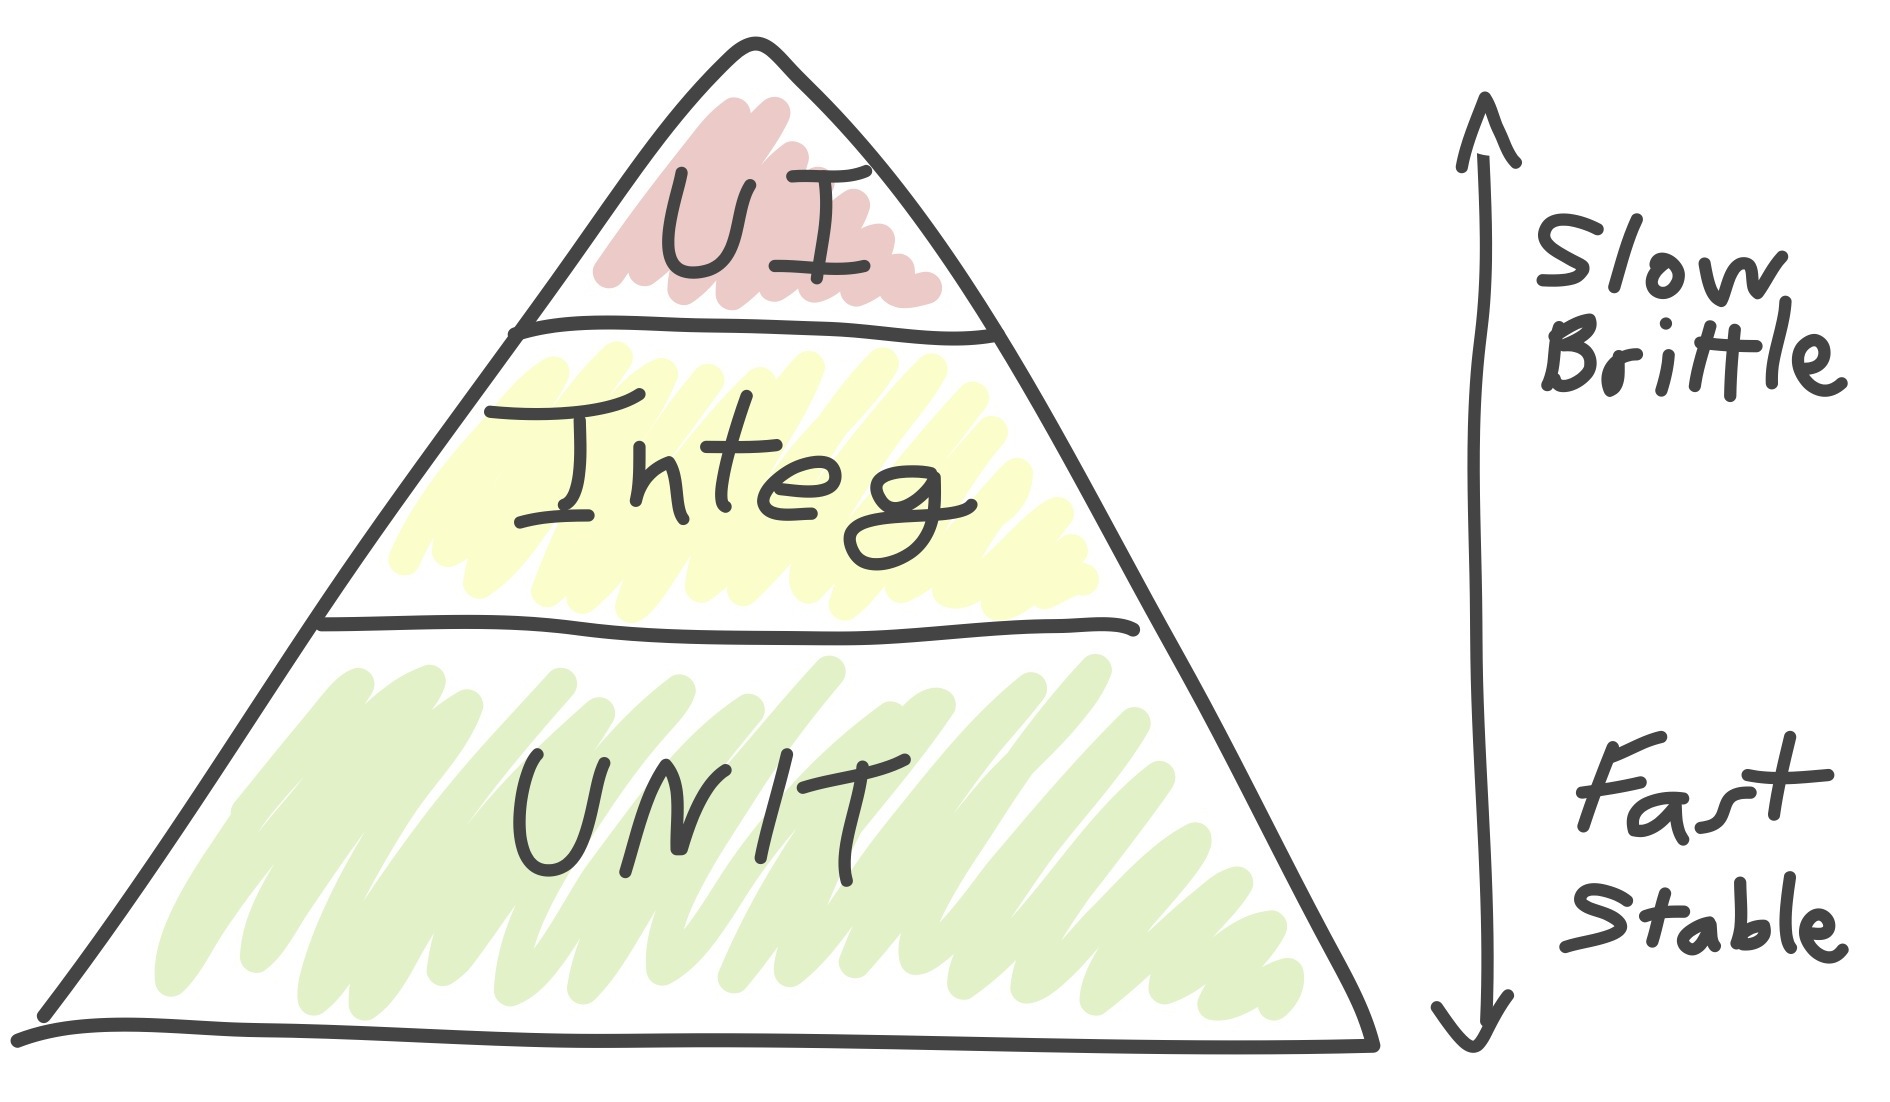 UI
Integ
UNIT
Slow
Brittle
Fast
Stable